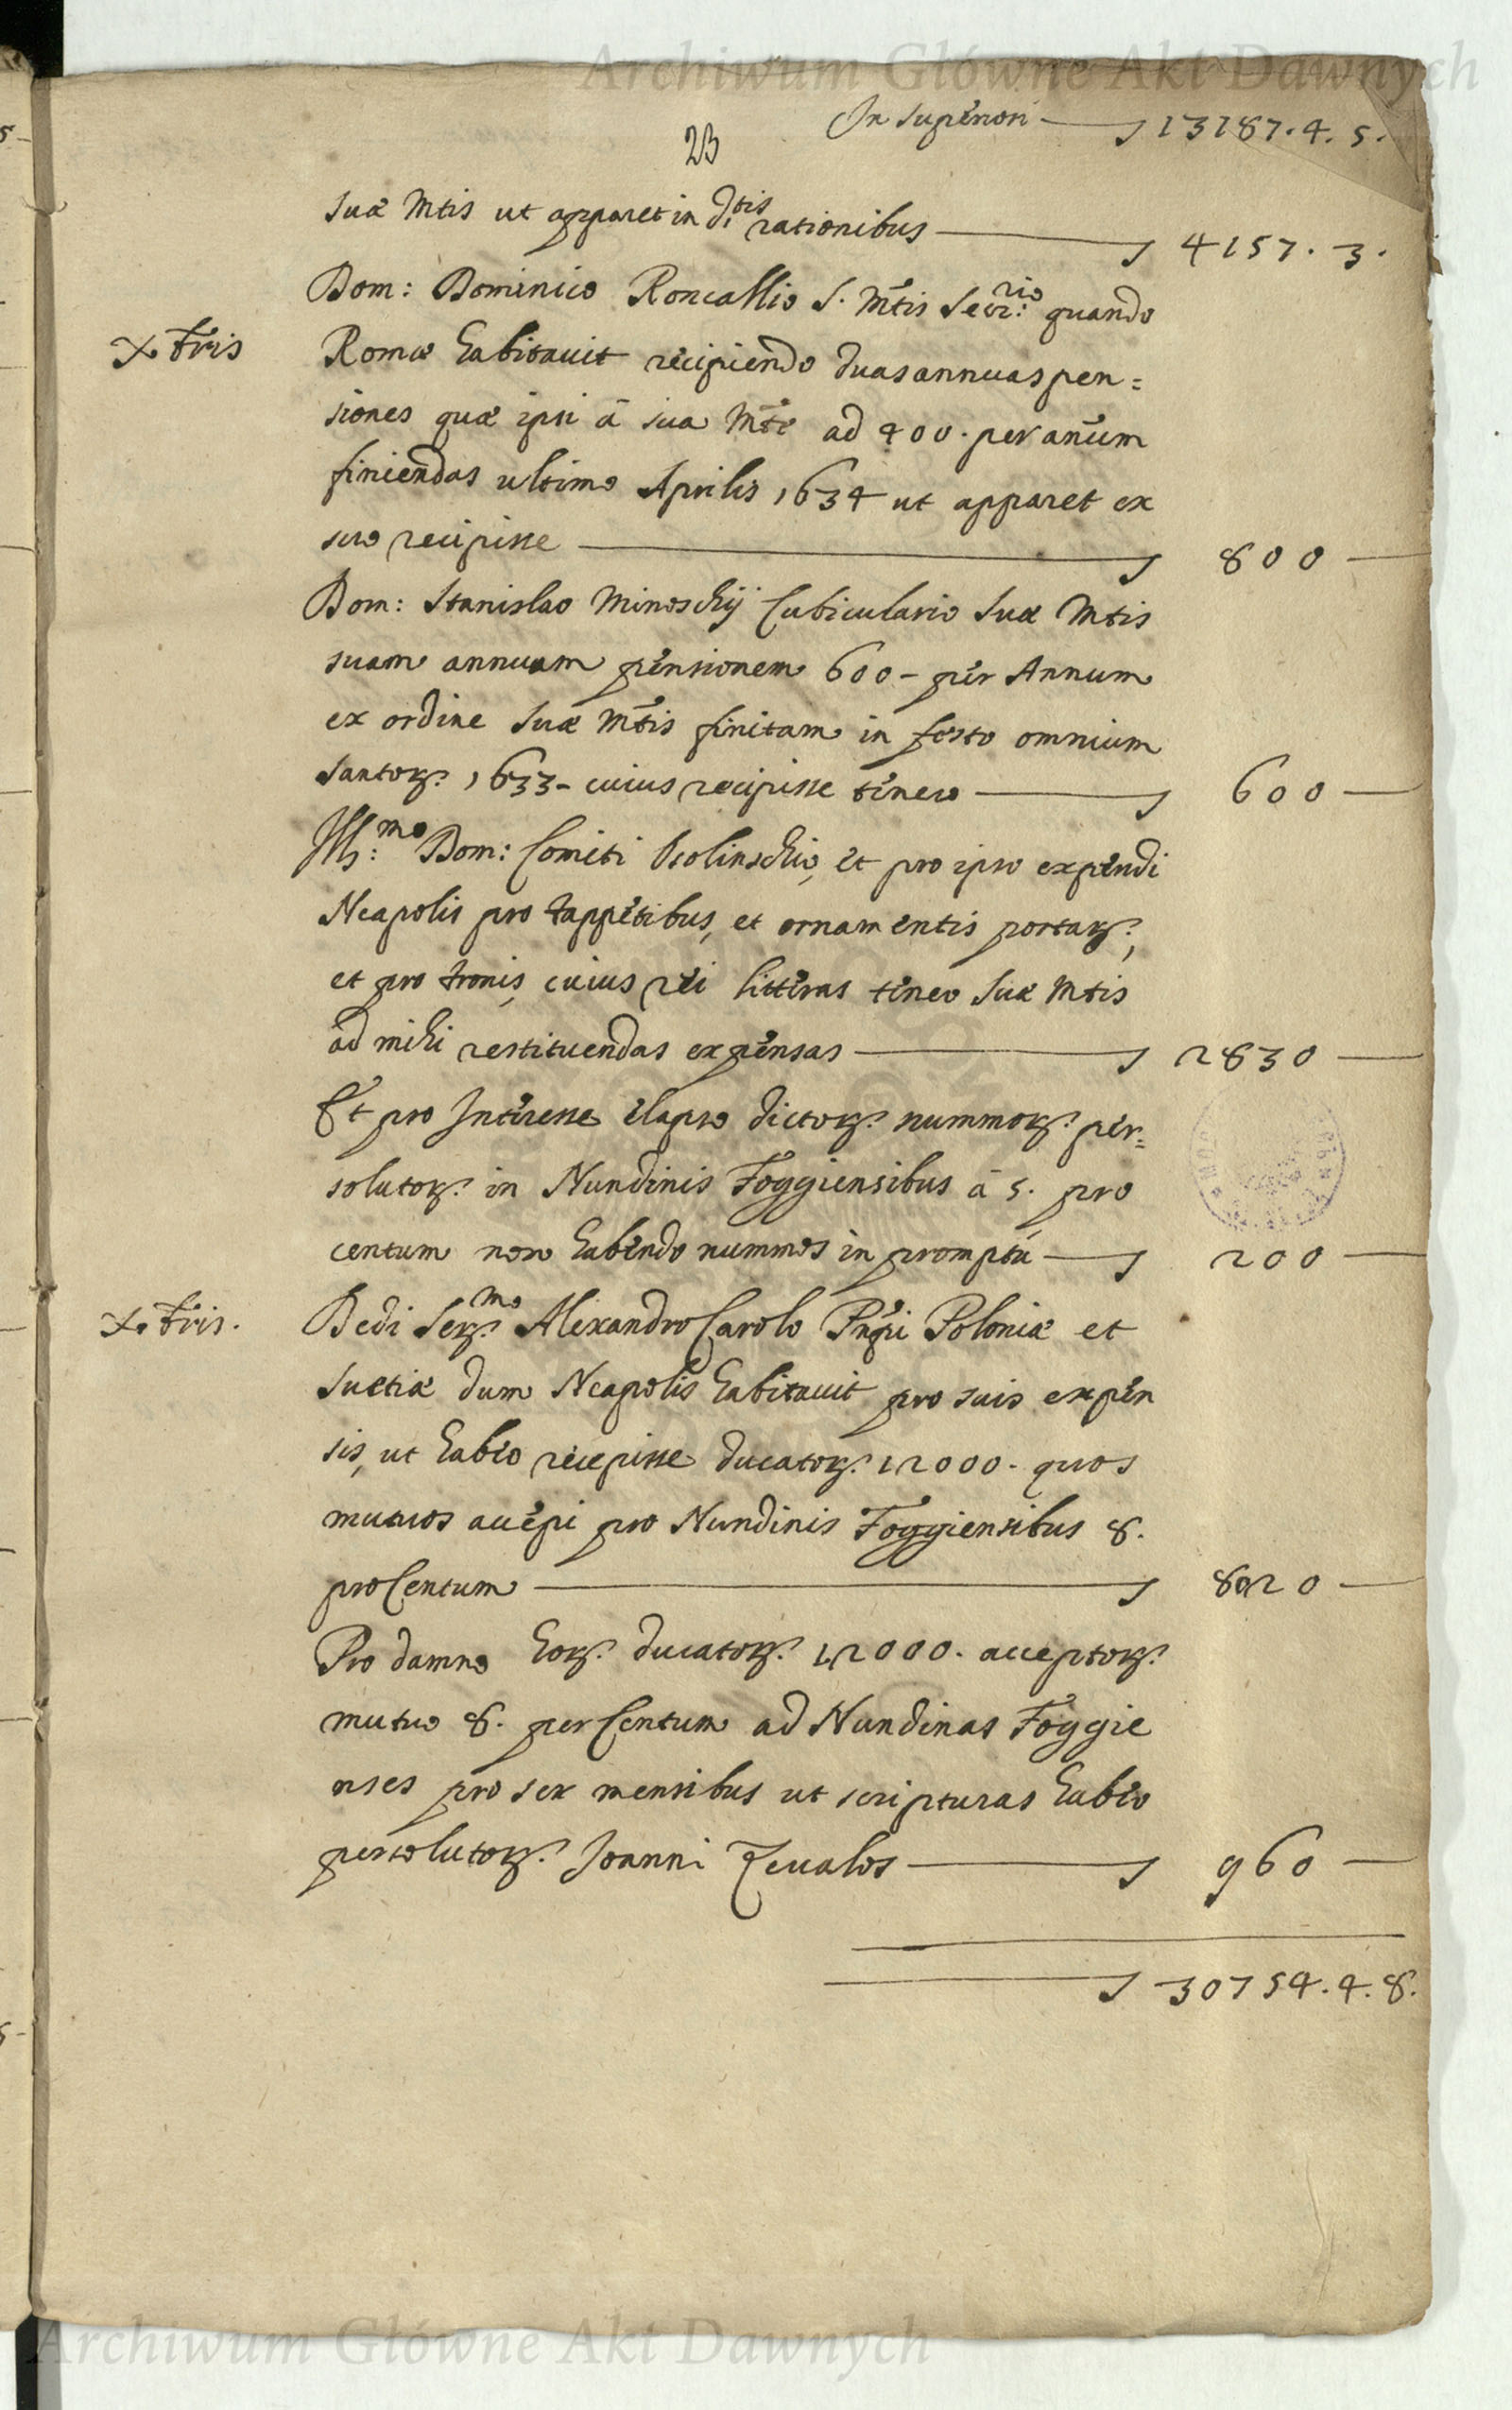 Archiwum Główne Akt Dawnych
In superiori — 13187. 4. 5.
23
suæ Mtis ut apparet in d.tis rationibus — 4157. 3.
Dom: Dominico Roncallio S. Mtis Secr:rio quando
x tris
Romæ habitauit recipiendo duas annuas pen=
siones quæ ipsi à sua Mte ad 400. per anũm
finiendas ultimo Aprilis 1634 ut apparet ex
suo recipisse — 800 —
Dom: Stanislao Minoschij Cubiculario Suæ Mtis
suam annuam pensionem 600 – per Annum
ex ordine Suæ Mtis finitam in festo omnium
Santor. 1633 – cuius recipisse teneo — 600 —
Ill:mo Dom: Comiti Osolinschio, et pro ipso expendi
Neapolis pro tappetibus, et ornamentis portar.,
et pro tronis, cuius rei litteras teneo Suæ Mtis
ad mihi restituendas expensas — 2830 —
Et pro Interesse elapso dictor. nummor. per=
solutor. in Nundinis Foggiensibus à 5. pro
centum non habendo nummos in promptu — 200 —
x. tris.
Dedi Ser.mo Alexandro Carolo Pnpi Poloniæ et
Suetiæ dum Neapolis habitauit pro suis expen
sis, ut habeo recepisse ducator. 12000. quos
mutuos accepi pro Nundinis Foggiensibus 8.
pro Centum — 8020 —
Pro damno hor. ducator. 12000. acceptor.
mutuo 8. per Centum ad Nundinas Foggie
nses pro sex mensibus ut scripturas habeo
persolutor. Joanni Zeualos — 960 —
— 30754. 4. 8.
Archiwum Główne Akt Dawnych